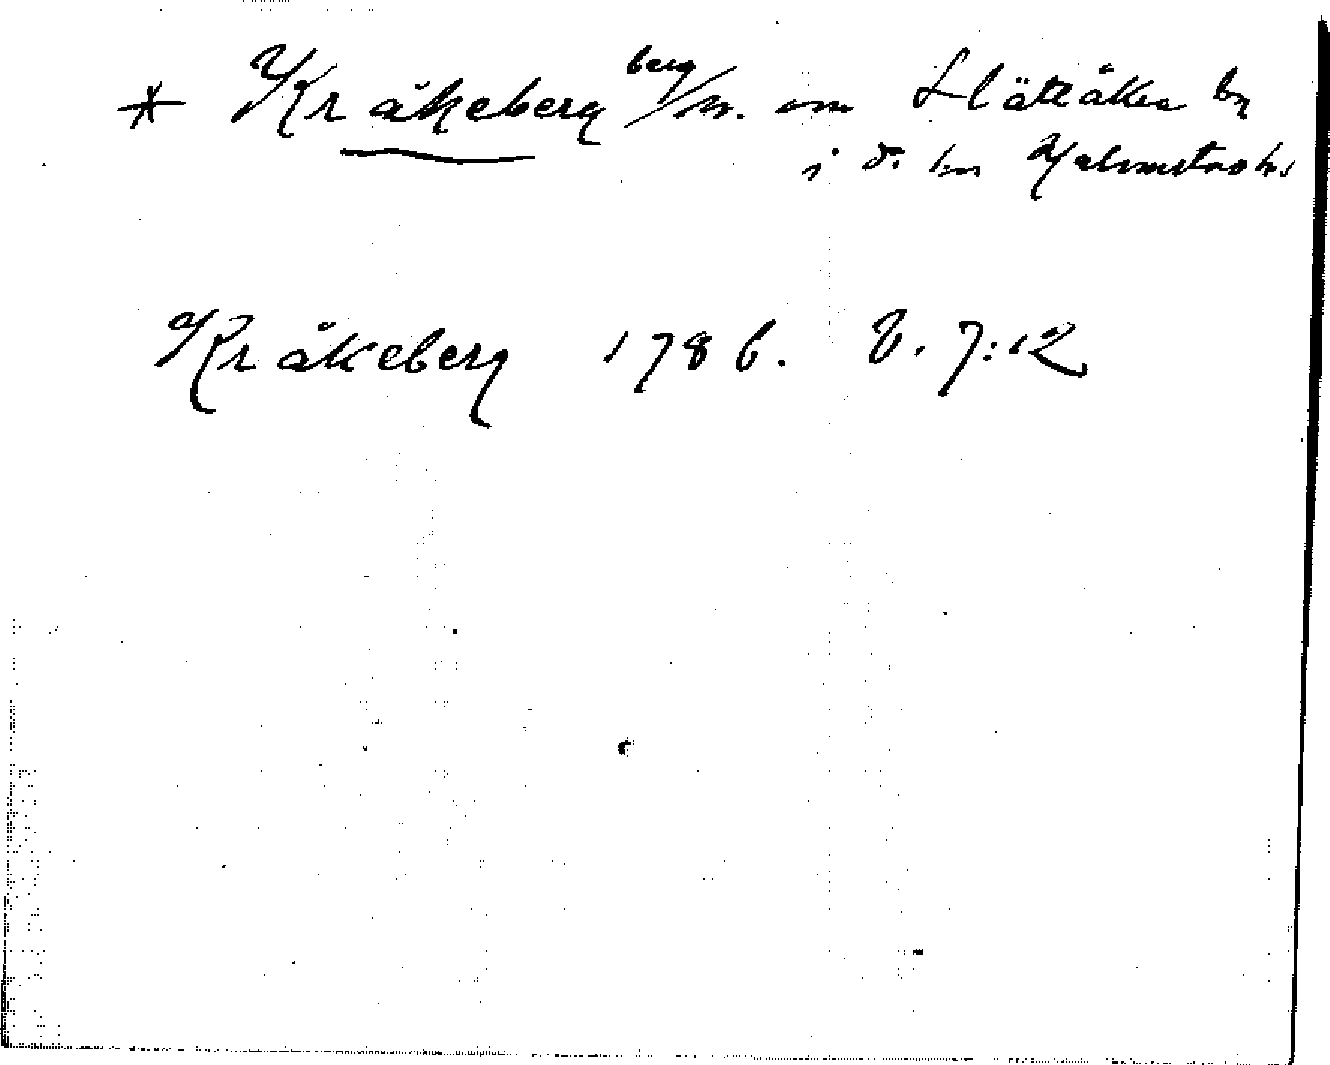 * Kråkeberg berg/n. om Slättåkra by
i d. sn Halmstads hd
Kråkeberg 1786. V. 7:12